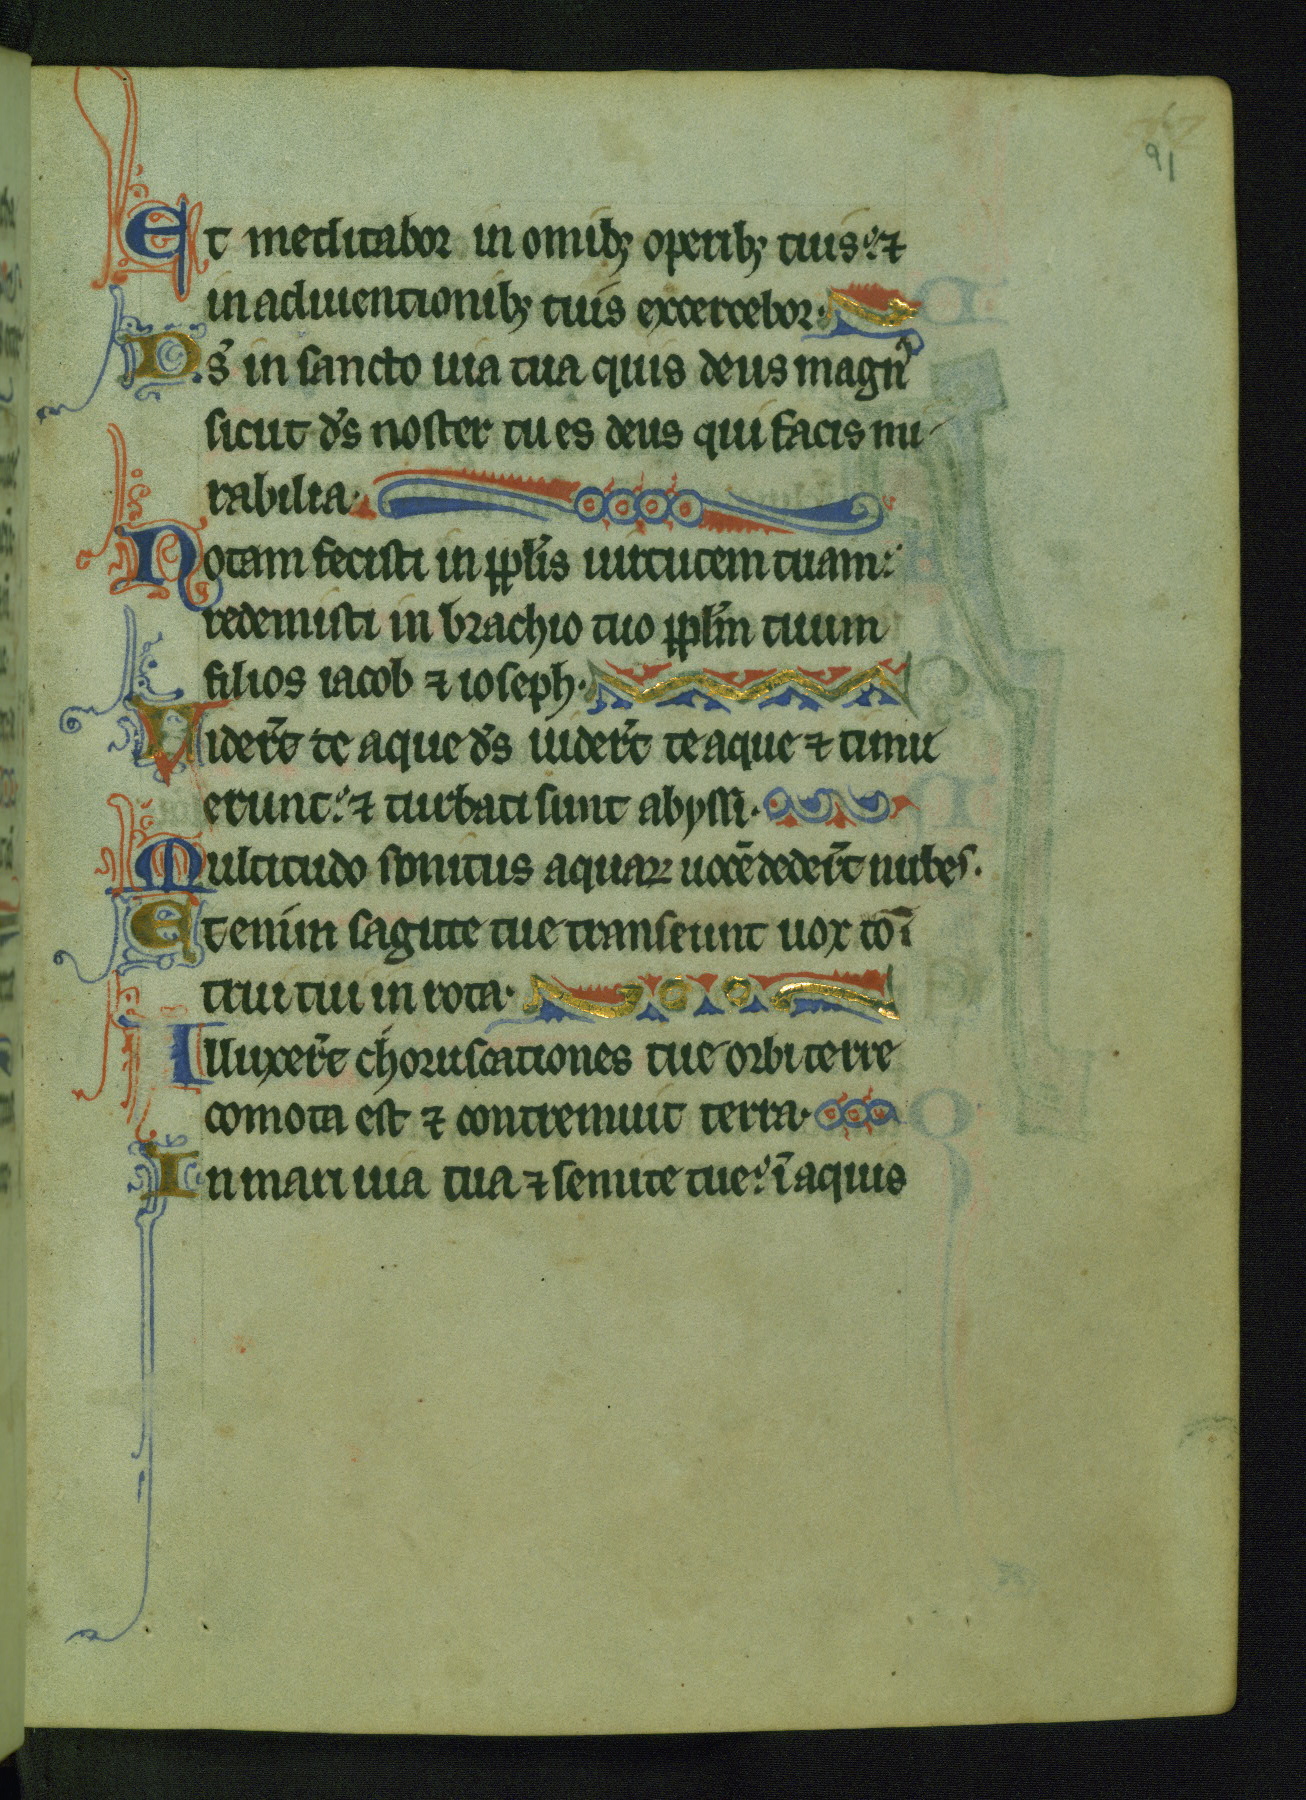 91
Et meditabor in omĩbꝫ operibꝫ tuis: ⁊
in adinuentionibꝫ tuis excercebor.
Ds̃ in sancto uia tua quis deus magnꝰ
sicut ds̃ noster tu es deus qui facis mi
rabilia.
Notam fecisti in ppl̃is uirtutem tuam:
redemisti in brachio tuo ppl̃m tuum
filios iacob ⁊ ioseph.
Vider̃t te aque ds̃ uider̃t te aque ⁊ timu
erunt: ⁊ turbati sunt abyssi.
Multitudo sonitus aquaꝝ uocẽ deder̃t nubes.
Etenim sagitte tue transeunt uox toĩ
trui tui in rota.
Illuxer̃t choruscationes tue orbi terre
comota est ⁊ contremuit terra.
In mari uia tua ⁊ semite tue: ĩ aquis